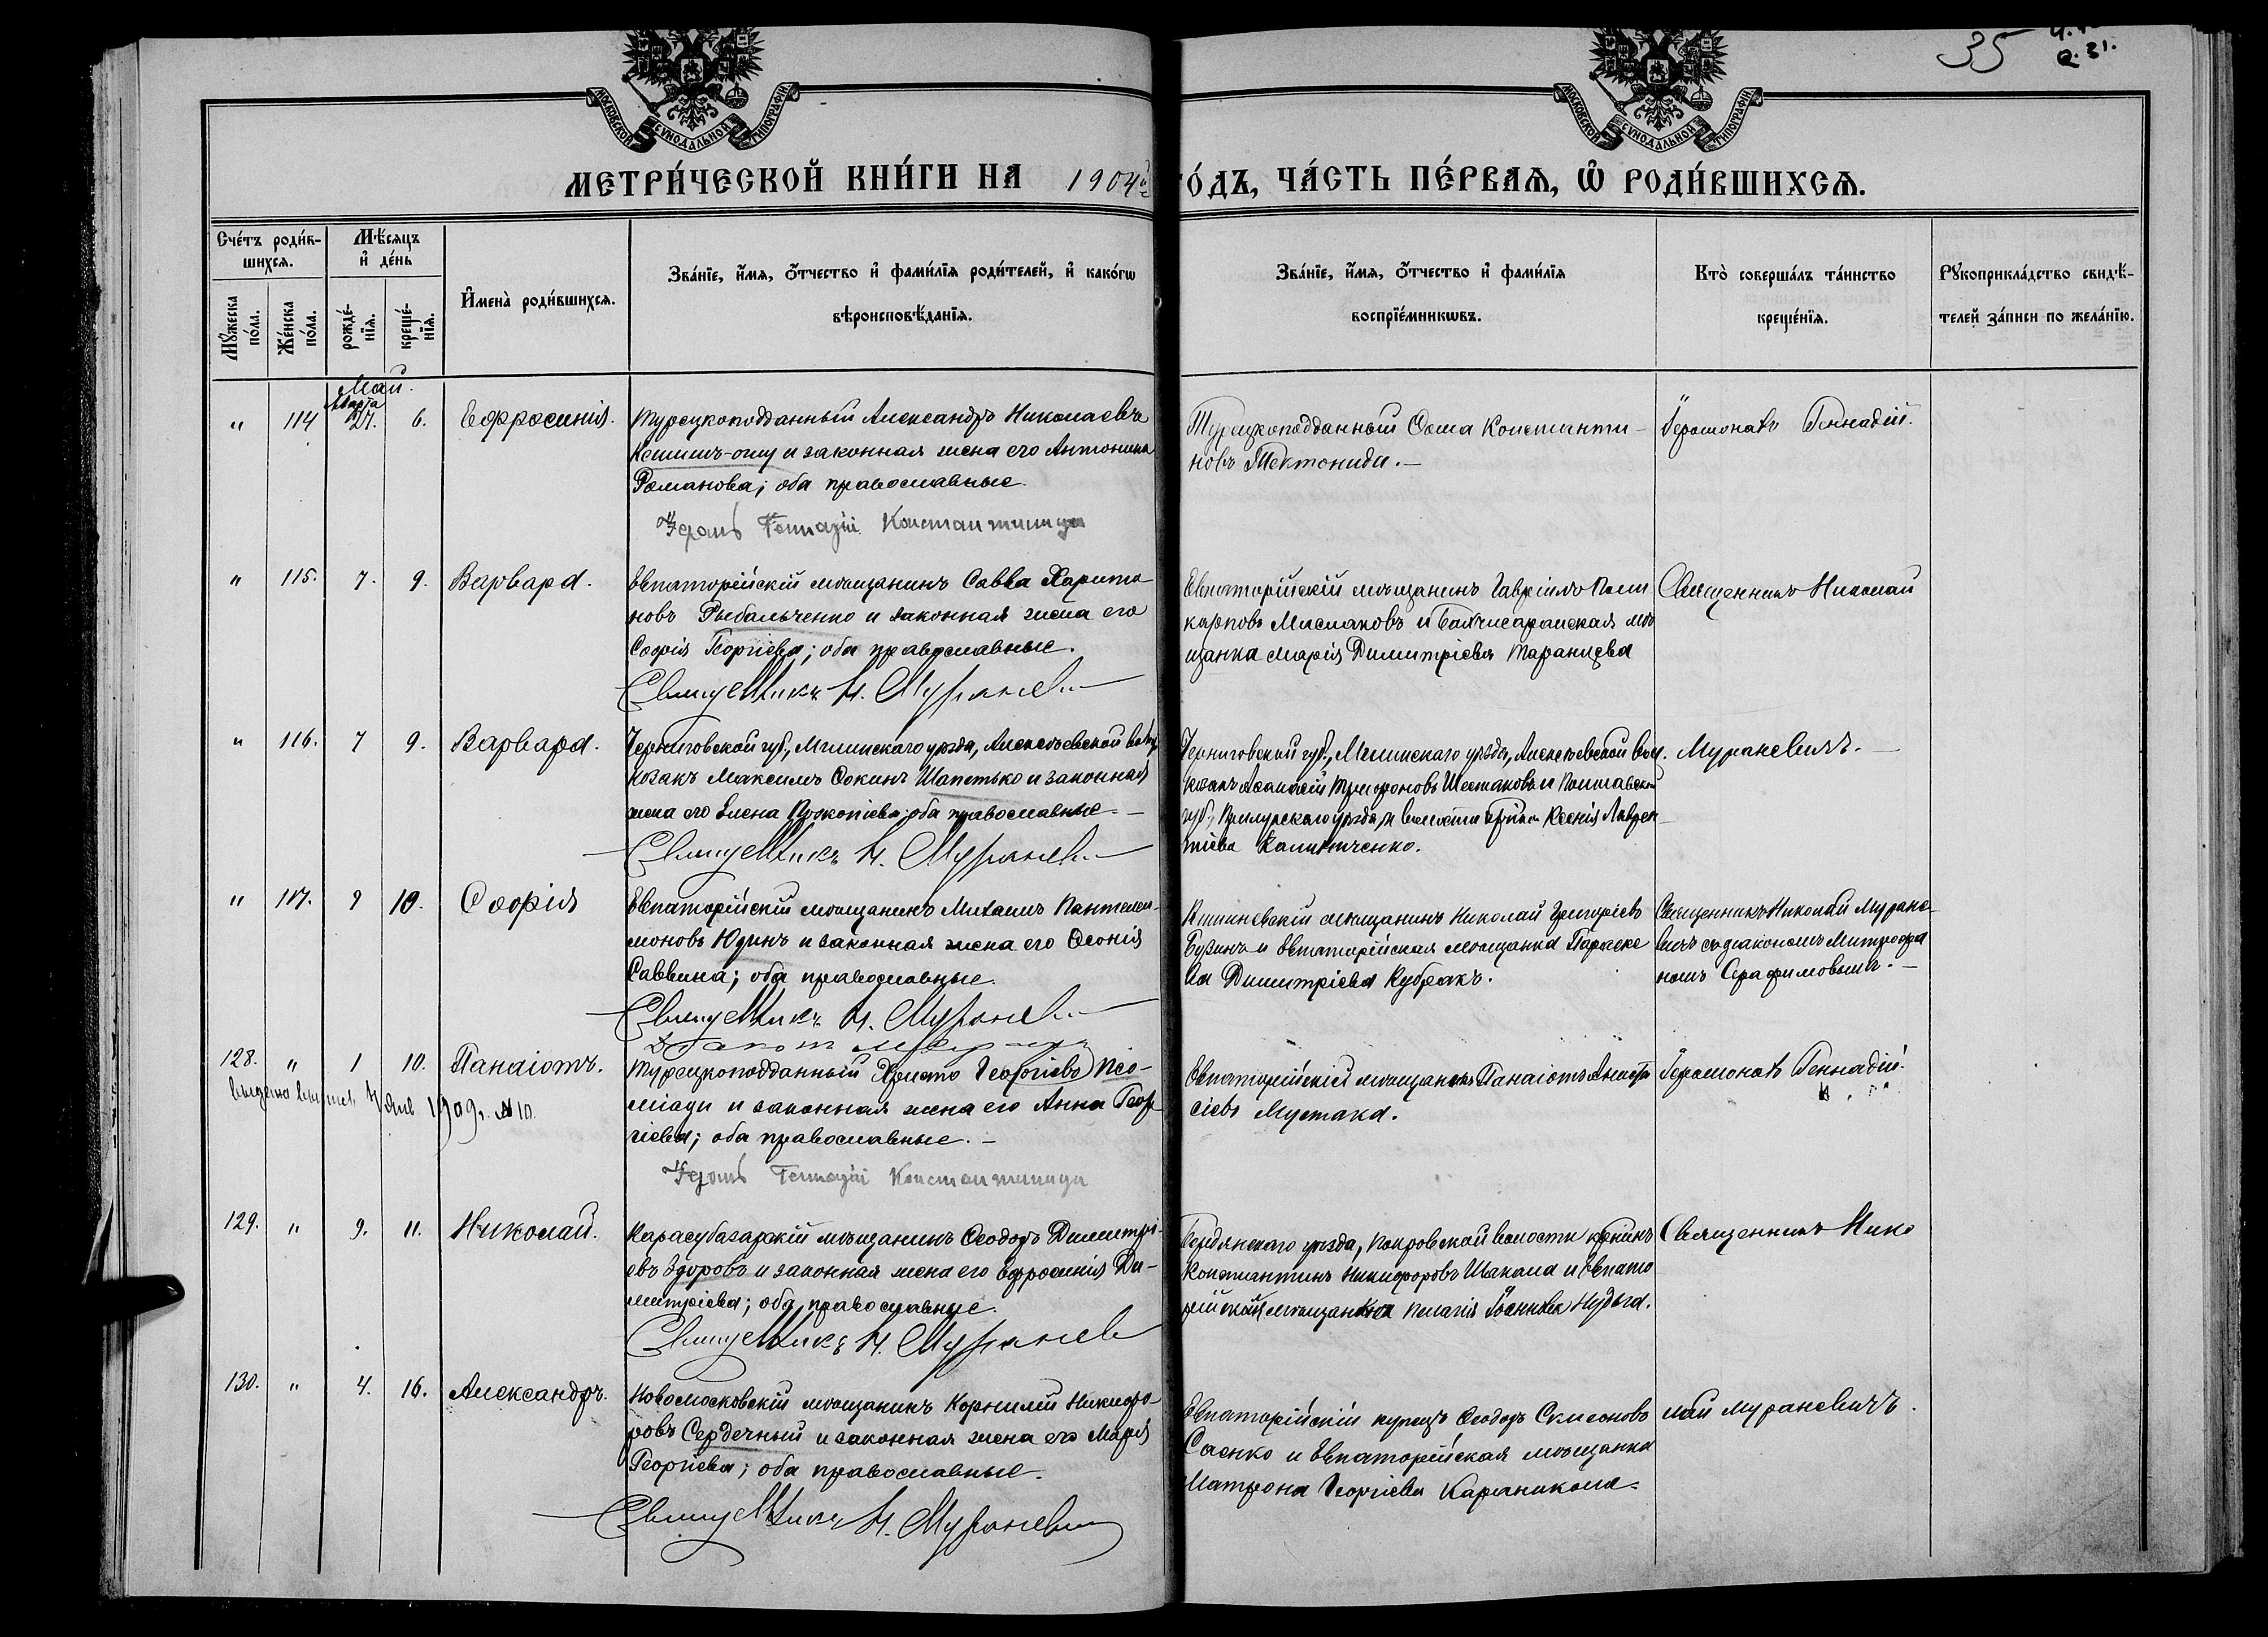 35
МОСКОВСКОЙ СУНОДАЛЬНОЙ ТИПОГРАФІИ
МОСКОВСКОЙ СУНОДАЛЬНОЙ ТИПОГРАФІИ
МЕТРИ́ЧЕСКОЙ КНИ́ГИ НА 1904й го́дъ, ЧА́СТЬ ПЕ́РВАѦ, Ѡ РОДИ́ВШИХСѦ.
Сче́тъ роди́в-
шихсѧ.
Мꙋжеска по́ла.
Же́нска по́ла.
Мѣ́сѧцъ
и҆ де́нь
рожде́-
нїѧ.
креще́-
нїѧ.
И҆мена̀ роди́вшихсѧ.
Зва́нїе, и҆́мѧ, ѻ҆́тчество и҆ фами́лїѧ роди́телей, и҆ како́гѡ
вѣроисповѣ́данїѧ.
Зва́нїе, и҆́мѧ, ѻ҆́тчество и҆ фами́лїѧ
воспрїе́мникѡвъ.
Кто̀ соверша́лъ та́инство
креще́нїѧ.
Рꙋкоприкла́дство свидѣ́-
телей за́писи по жела́нїю.
Май.
Марта
" 114 27. 6. Ефросинія.
Турецкоподданный Александръ Николаевъ
Кешишъ-оглу и законная жена его Антонина
Романова; оба православные.
Іером Геннадій Константиниди
Турецкоподданный Ѳома Константи-
новъ Тектониди.-
Іеромонахъ Геннадій.
" 115. 7. 9. Варвара.
Евпаторійскій мѣщанинъ Савва Харито
новъ Рыбальченко и законная жена его
Софія Георгіева; оба православные.
Священникъ Н. Мураневичъ
Евпаторійскій мѣщанинъ Гавріилъ Поли
карповъ Мислаковъ и Бахчисарайская мѣ
щанка Марія Димитріева Таранцева
Священникъ Николай
" 116. 7 9. Варвара.
Черниговской губ., Мглинскаго уѣзда, Алексѣевской вол.
козакъ Максимъ Ѳокинъ Шапетько и законная
жена его Елена Прокопіева; оба православные.-
Священникъ Н. Мураневичъ
Черниговской губ., Мглинскаго уѣзда, Алексѣевской вол.
козакъ Аѳанасій Трифоновъ Шестаковъ и Полтавской
губ., Прилукскаго уѣзда, волости Ксенія Лаврен
тіева Калиниченко.
Мураневичъ.-
" 117. 9 10. Софія
Евпаторійскій мѣщанинъ Михаилъ Пантелеи-
моновъ Юдинъ и законная жена его Ѳеонія
Саввина; оба православные.
Священникъ Н. Мураневичъ
Кишиневскій мѣщанинъ Николай Григорьевъ
Бузинъ и Евпаторійская мѣщанка Параске
ва Димитріева Кубракъ.
Священникъ Николай Мурано
вичъ съ діакономъ Митрофа
номъ Серафимовымъ.-
128. " 1 10. Панаіотъ.
выдана выпись Янв 1909г. № 10.
Турецкоподданный Христо Георгіевъ Псо-
міади и законная жена его Анна Геор
гіева; оба православные.-
Іером Геннадій Константиниди
Евпаторійскій мѣщанинъ Панаіотъ Анаста
сіевъ Мустака.
Іеромонахъ Геннадій.
129. " 9. 11. Николай.
Карасубазарскій мѣщанинъ Ѳеодоръ Димитрі-
евъ Здоровъ и законная жена его Ефросинія Ди-
митріева; оба православные.
Священникъ Н. Мураневичъ
Бердянскаго уѣзда, Покровской волости кр-нинъ
Константинъ Никифоровъ Шакала и Евпато
рійская мѣщанка Пелагія Іоаннова Нудьга.
Священникъ Нико
130. " 4. 16. Александръ.
Новомосковскій мѣщанинъ Корнилій Никифо-
ровъ Сердечный и законная жена его Марія
Георгіева; оба православные.
Священникъ Н. Мураневичъ
Евпаторійскій купецъ Ѳеодоръ
Саенко и Евпаторійская мѣщанка
Матрона Георгіева Караникола.
лай Мураневичъ.